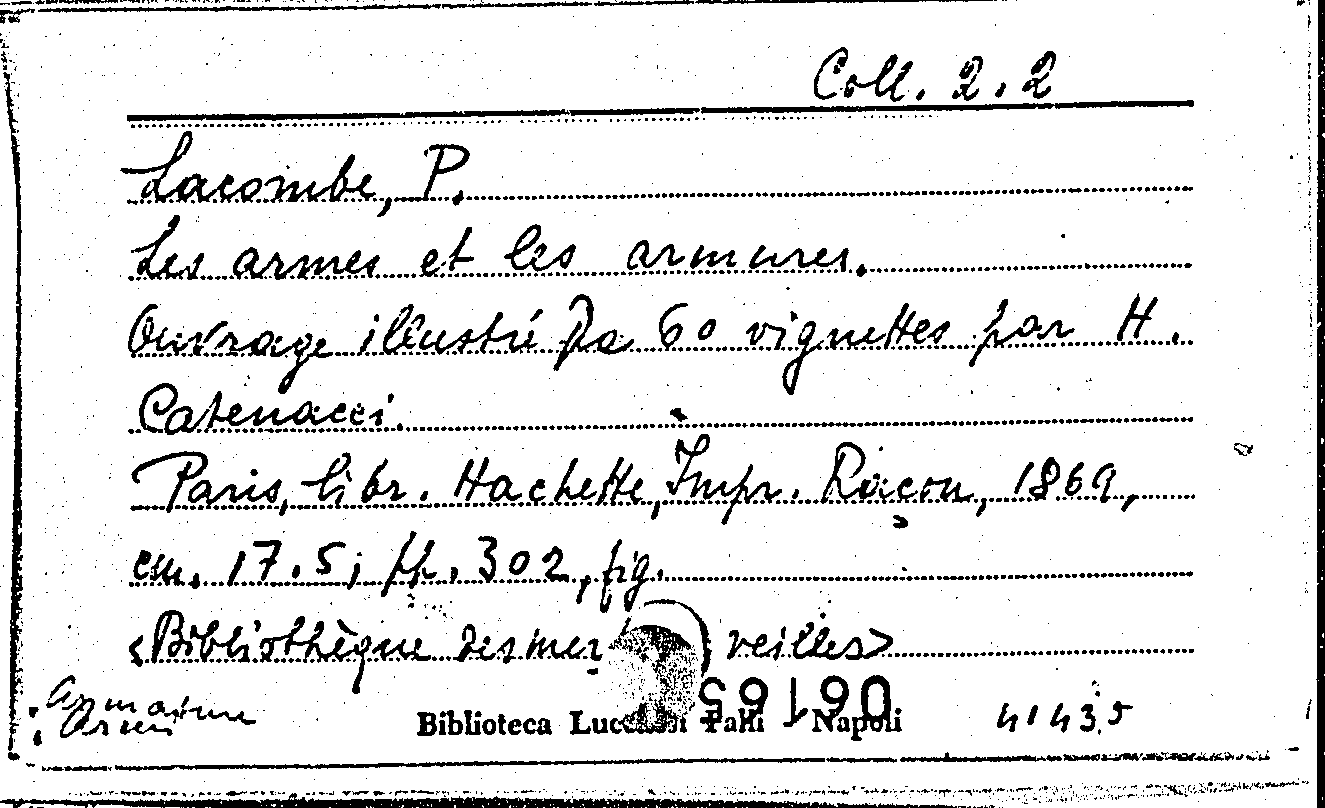 Coll. 2.2
Lacombe, P.
Les armes et les armures.
Ouvrage illustré De 60 vignettes par H.
Catenacci.
Paris, libr. Hachette, Impr. Raçon, 1869,
cm. 17.5; pp. 302, fig.
<Bibliothèque des mer veilles>
Armature
Armi
Biblioteca Lucchesi Palli - Napoli
06165
41435